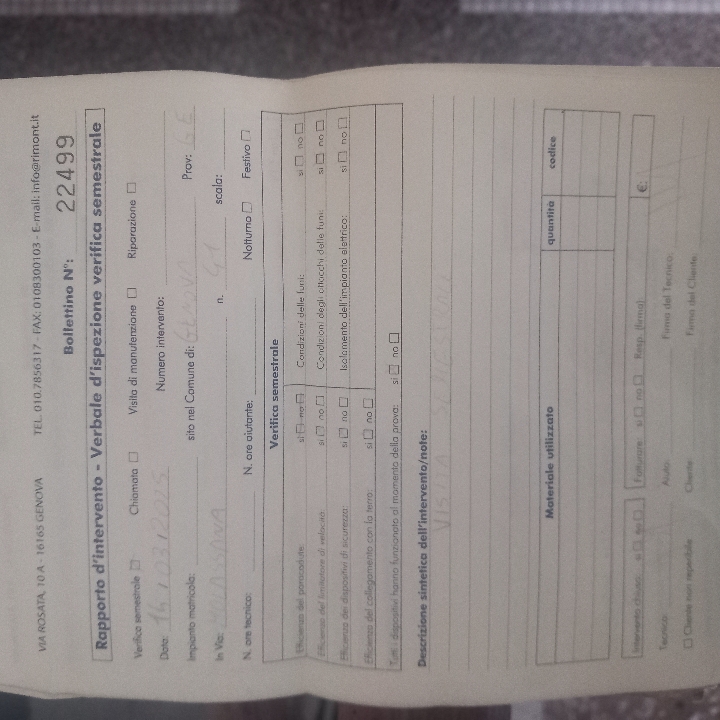 VIA ROSATA, 10 A - 16165 GENOVA TEL. 010.7856317 - FAX: 0108300103 - E-mail: info@rimont.it
Bollettino N°: 22499
Rapporto d'intervento - Verbale d'ispezione verifica semestrale
Verifica semestrale □ Chiamata □ Visita di manutenzione □ Riparazione □
Data: 14/03/2025 Numero intervento:
Impianto matricola: sito nel Comune di: GENOVA Prov: GE
In Via: n. scala:
N. ore tecnico: N. ore aiutante: Notturno □ Festivo □
Verifica semestrale
Efficienza del paracadute: si □ no □ Condizioni delle funi: si □ no □
Efficienza del limitatore di velocità: si □ no □ Condizioni degli attacchi delle funi: si □ no □
Efficienza dei dispositivi di sicurezza: si □ no □ Isolamento dell'impianto elettrico: si □ no □
Efficienza del collegamento con la terra: si □ no □
Tutti i dispositivi hanno funzionato al momento della prova: si □ no □
Descrizione sintetica dell'intervento/note:
VISITA
Materiale utilizzato quantità codice
Intervento chiuso: si □ no □ Fatturare si □ no □ Resp. (firma): €:
Tecnico: Aiuto: Firma del Tecnico:
□ Cliente non reperibile Cliente: Firma del Cliente: